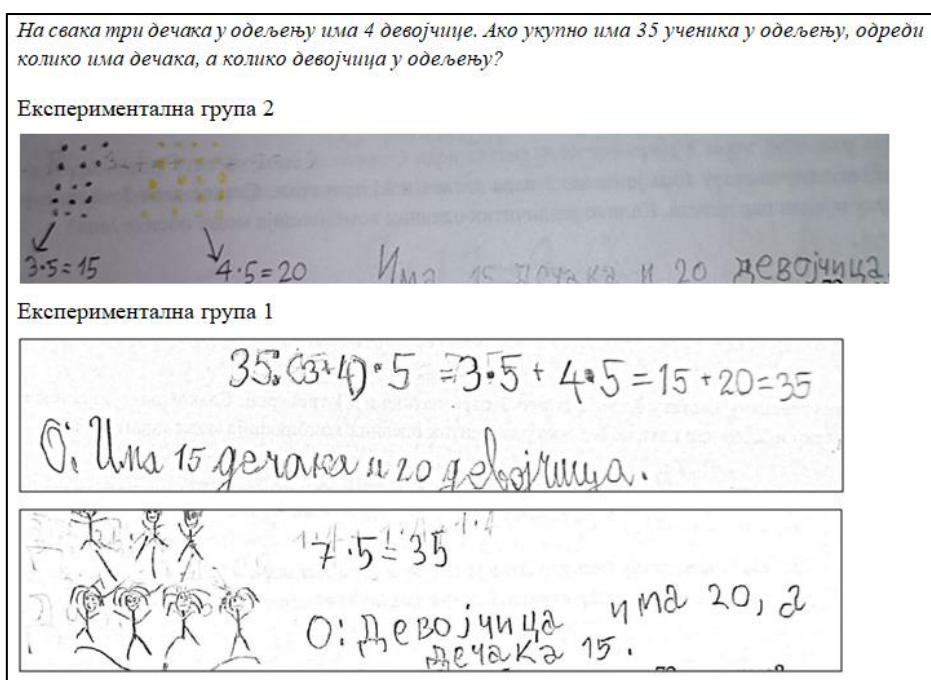 На свака три дечака у одељењу има 4 девојчице. Ако укупно има 35 ученика у одељењу, одреди
колико има дечака, а колико девојчица у одељењу?
Експериментална група 2
3·5=15 4·5=20 Има 15 дечака и 20 девојчица.
Експериментална група 1
35:(3+4)·5=3·5+4·5=15+20=35
О: Има 15 дечака и 20 девојчица.
7·5=35
О: Девојчица има 20, а
дечака 15.